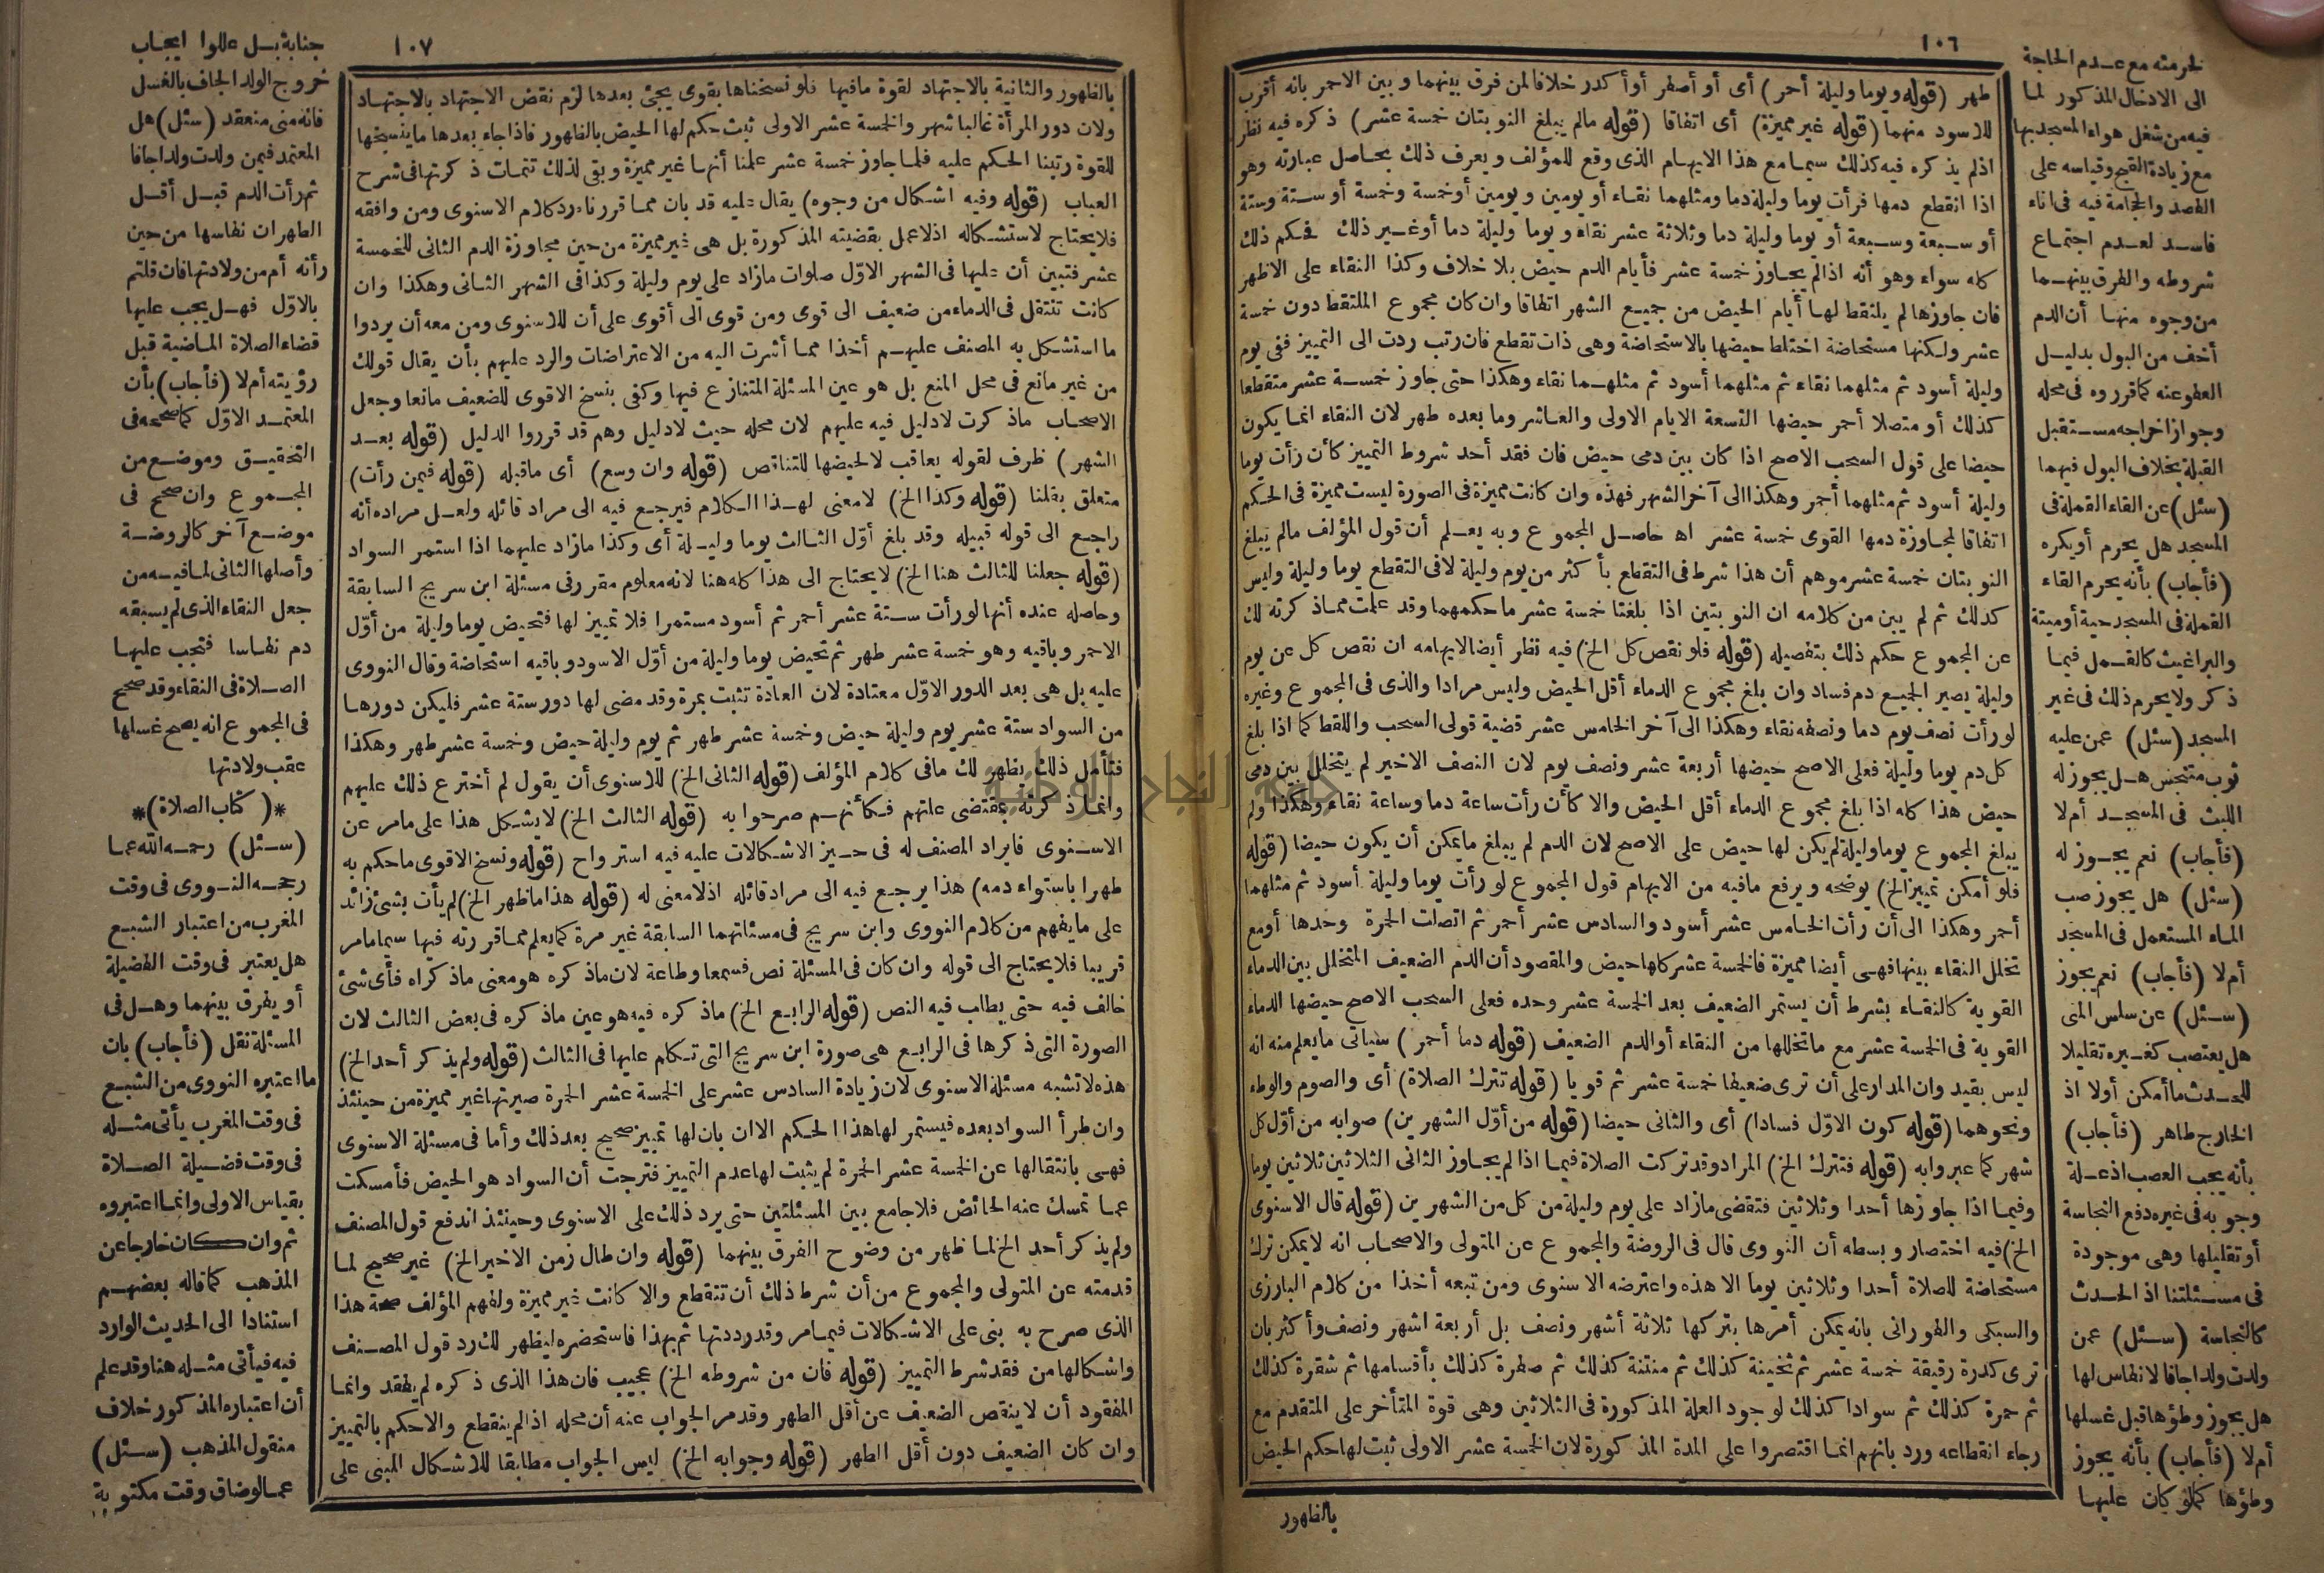 ١٠٦
طهر (قوله ويوما وليلة أحر) أى أو أصفر أو أكدر خلافا لمن فرق بينهما وبين الاحمر بانه أقرب
للاسود منهما (قوله غير مميزة) أى اتفاقا (قوله مالم يبلغ النوبتان خمسة عشر) ذكره فيه نظر
اذلم يذكره فيه كذلك سيما مع هذا الايهام الذى وقع للمؤلف ويعرف ذلك بحاصل عبارته وهو
اذا انقطع دمها فرأت يوما وليلة دما ومثلهما نقاء أو يومين ويومين أو خمسة وخمسة أو ستة وستة
أو سبعة وسبعة أو يوما وليلة دما وثلاثة عشر نقاء ويوما وليلة دما أو غير ذلك فحكم ذلك
كله سواء وهو أنه اذالم يجاوز خمسة عشر فأيام الدم حيض بلا خلاف وكذا النقاء على الاظهر
فان جاوزها لم يلتقط لها أيام الحيض من جميع الشهر اتفاقا وان كان مجموع الملتقط دون خمسة
عشر ولكنها مستحاضة اختلط حيضها بالاستحاضة وهى ذات تقطع فان رتب ردت الى التمييز ففى يوم
وليلة أسود ثم مثلهما نقاء ثم مثلهما أسود ثم مثلهما نقاء وهكذا حتى جاوز خمسة عشر متقطعا
كذلك أو متصلا أحمر حيضها التسعة الايام الاولى والعاشر وما بعده طهر لان النقاء انما يكون
حيضا على قول السحب الاصح اذا كان بين دمى حيض فان فقد أحد شروط التمييز كأن رأت يوما
وليلة أسود ثم مثلهما أحمر وهكذا الى آخر الشهر فهذه وان كانت مميزة فى الصورة ليست مميزة فى الحكم
اتفاقا لمجاوزة دمها القوى خمسة عشر اه حاصل المجموع وبه يعلم أن قول المؤلف مالم يبلغ
النوبتان خمسة عشر موهم أن هذا شرط فى التقطع بأكثر من يوم وليلة لا فى التقطع يوما وليلة وليس
كذلك ثم لم يبن من كلامه ان النوبتين اذا بلغتا خمسة عشر ما حكمهما وقد علمت مما ذكرته لك
عن المجموع حكم ذلك بتفصيله (قوله فلو نقص كل الخ) فيه نظر أيضا لايهامه ان نقص كل عن يوم
وليلة يصير الجميع دم فساد وان بلغ مجموع الدماء أقل الحيض وليس مرادا والذى فى المجموع وغيره
لو رأت نصف يوم دما ونصفه نقاء وهكذا الى آخر الخامس عشر قضية قولى السحب واللقط كما اذا بلغ
كل دم يوما وليلة فعلى الاصح حيضها أربعة عشر ونصف يوم لان النصف الاخير لم يتخلل بين دمى
حيض هذا كله اذا بلغ مجموع الدماء أقل الحيض والا كأن رأت ساعة دما وساعة نقاء وهكذا ولم
يبلغ المجموع يوما وليلة لم يكن لها حيض على الاصح لان الدم لم يبلغ ما يمكن أن يكون حيضا (قوله
فلو أمكن تمييز الخ) يوضحه ويرفع مافيه من الايهام قول المجموع لو رأت يوما وليلة أسود ثم مثلهما
أحمر وهكذا الى أن رأت الخامس عشر أسود والسادس عشر أحمر ثم اتصلت الحمرة وحدها أو مع
تخلل النقاء بينها فهى أيضا مميزة فالخمسة عشر كلها حيض والمقصود أن الدم الضعيف المتخلل بين الدماء
القوية كالنقاء بشرط أن يستمر الضعيف بعد الخمسة عشر وحده فعلى السحب الاصح حيضها الدماء
القوية فى الخمسة عشر مع ما تخللها من النقاء أو الدم الضعيف (قوله دما أحمر) سيأتى ما يعلم منه انه
ليس بقيد وان المدار على أن ترى ضعيفا خمسة عشر ثم قويا (قوله تترك الصلاة) أى والصوم والوطء
ونحوهما (قوله كون الاوّل فسادا) أى والثانى حيضا (قوله من أوّل الشهرين) صوابه من أوّل كل
شهر كما عبروا به (قوله فتترك الخ) المراد وقد تركت الصلاة فيما اذا لم يجاوز الثانى الثلاثين ثلاثين يوما
وفيما اذا جاوزها أحدا وثلاثين فتقضى مازاد على يوم وليلة من كل من الشهرين (قوله قال الاسنوى
الخ) فيه اختصار وبسطه أن النووى قال فى الروضة والمجموع عن المتولى والاصحاب انه لا يمكن ترك
مستحاضة للصلاة أحدا وثلاثين يوما الا هذه واعترضه الاسنوى ومن تبعه أخذا من كلام البارزى
والسبكى والطورانى بانه يمكن أمرها بتركها ثلاثة أشهر ونصف بل أربعة اشهر ونصف وأكثر بان
ترى كدرة رقيقة خمسة عشر ثم ثخينة كذلك ثم منتنة كذلك ثم صفرة كذلك بأقسامها ثم شقرة كذلك
ثم حمرة كذلك ثم سوادا كذلك لوجود العلة المذكورة فى الثلاثين وهى قوة المتأخر على المتقدم مع
رجاء انقطاعه ورد بانهم انما اقتصروا على المدة المذكورة لان الخمسة عشر الاولى ثبت لها حكم الحيض
بالظهور
لحرمته مع عدم الحاجة
الى الادخال المذكور لما
فيه من شغل هواء المسجد بها
مع زيادة القبح وقياسه على
الفصد والحجامة فيه فى اناء
فاسد لعدم اجتماع
شروطه والفرق بينهما
من وجوه منها أن الدم
أخف من البول بدليل
العفو عنه كما قرروه فى محله
وجواز اخراجه مستقبل
القبلة بخلاف البول فيهما
(سئل) عن القاء القملة فى
المسجد هل يحرم أو يكره
(فأجاب) بأنه يحرم القاء
القملة فى المسجد حية أو ميتة
والبراغيث كالقمل فيما
ذكر ولا يحرم ذلك فى غير
المسجد (سئل) عمن عليه
ثوب متنجس هل يجوز له
اللبث فى المسجد أم لا
(فأجاب) نعم يجوز له
(سئل) هل يجوز صب
الماء المستعمل فى المسجد
أم لا (فأجاب) نعم يجوز
(سئل) عن سلس المنى
هل يعتصب كغيره تقليلا
للحدث ما أمكن أولا اذ
الخارج طاهر (فأجاب)
بأنه يجب العصب اذ علة
وجوبه فى غيره دفع النجاسة
أو تقليلها وهى موجودة
فى مسئلتنا اذ الحدث
كالنجاسة (سئل) عمن
ولدت ولدا جافا لا نفاس لها
هل يجوز وطؤها قبل غسلها
أم لا (فأجاب) بأنه يجوز
وطؤها كما لو كان عليها
١٠٧
بالظهور والثانية بالاجتهاد لقوة مافيها فلو نسخناها بقوى يجئ بعدها لزم نقض الاجتهاد بالاجتهاد
ولان دور المرأة غالبا شهر والخمسة عشر الاولى ثبت حكم لها الحيض بالظهور فاذا جاء بعدها ما ينسخها
للقوة رتبنا الحكم عليه فلما جاوز خمسة عشر علمنا أنها غير مميزة وبقى لذلك تتمات ذكرتها فى شرح
العباب (قوله وفيه اشكال من وجوه) يقال عليه قد بان مما قررناه رد كلام الاسنوى ومن وافقه
فلا يحتاج لاستشكاله اذلا عمل بقضيته المذكورة بل هى غير مميزة من حين مجاوزة الدم الثانى للخمسة
عشر فتبين أن عليها فى الشهر الاوّل صلوات مازاد على يوم وليلة وكذا فى الشهر الثانى وهكذا وان
كانت تنتقل فى الدماء من ضعيف الى قوى ومن قوى الى أقوى على أن للاسنوى ومن معه أن يردوا
ما استشكل به المصنف عليهم أخذا مما أشرت اليه من الاعتراضات والرد عليهم بأن يقال قولك
من غير مانع فى محل المنع بل هو عين المسئلة المتنازع فيها وكفى بنسخ الاقوى للضعيف مانعا وجعل
الاصحاب ماذكرت لا دليل فيه عليهم لان محله حيث لا دليل وهم قد قرروا الدليل (قوله بعد
الشهر) ظرف لقوله يعاقب لا لحيضها للتناقص (قوله وان وسع) أى ماقبله (قوله فيمن رأت)
متعلق بقلنا (قوله وكذا الخ) لا معنى لهذا الكلام فيرجع فيه الى مراد قائله ولعل مراده أنه
راجع الى قوله قبيله وقد بلغ أوّل الثالث يوما وليلة أى وكذا مازاد عليهما اذا استمر السواد
(قوله جعلنا للثالث هنا الخ) لا يحتاج الى هذا كله هنا لانه معلوم مقرر فى مسئلة ابن سريج السابقة
وحاصله عنده أنها لو رأت ستة عشر أحمر ثم أسود مستمرا فلا تمييز لها فتحيض يوما وليلة من أوّل
الاحمر وباقيه وهو خمسة عشر طهر ثم تحيض يوما وليلة من أوّل الاسود وباقيه استحاضة وقال النووى
عليه بل هى بعد الدور الاوّل معتادة لان العادة تثبت بمرة وقد مضى لها دور ستة عشر فليكن دورها
من السواد ستة عشر يوم وليلة حيض وخمسة عشر طهر ثم يوم وليلة حيض وخمسة عشر طهر وهكذا
فتأمل ذلك يظهر لك مافى كلام المؤلف (قوله الثانى الخ) للاسنوى أن يقول لم أخترع ذلك عليهم
وانما ذكرته بمقتضى علتهم فكأنهم صرحوا به (قوله الثالث الخ) لا يشكل هذا على مامر عن
الاسنوى فايراد المصنف له فى حيز الاشكالات عليه فيه استرواح (قوله ونسخ الاقوى ما حكم به
طهرا باستواء دمه) هذا يرجع فيه الى مراد قائله اذلا معنى له (قوله هذا ما ظهر الخ) لم يأت بشئ زائد
على مايفهم من كلام النووى وابن سريج فى مسئلتهما السابقة غير مرة كما يعلم مما قررته فيها سيما مامر
قريبا فلا يحتاج الى قوله وان كان فى المسئلة نص فسمعا وطاعة لان ماذكره هو معنى ماذكراه فأى شئ
خالف فيه حتى يطالب فيه النص (قوله الرابع الخ) ماذكره فيه هو عين ماذكره فى بعض الثالث لان
الصورة التى ذكرها فى الرابع هى صورة ابن سريج التى تكلم عليها فى الثالث (قوله ولم يذكر أحد الخ)
هذه لا تشبه مسئلة الاسنوى لان زيادة السادس عشر على الخمسة عشر الحمرة صيرتها غير مميزة من حينئذ
وان طرأ السواد بعده فيستمر لها هذا الحكم الا ان بان لها تمييز صحيح بعد ذلك وأما فى مسئلة الاسنوى
فهى بانتقالها عن الخمسة عشر الحمرة لم يثبت لها عدم التمييز فترجت أن السواد هو الحيض فأمسكت
عما تمسك عنه الحائض فلا جامع بين المسئلتين حتى يرد ذلك على الاسنوى وحينئذ اندفع قول المصنف
ولم يذكر أحد الخ لما ظهر من وضوح الفرق بينهما (قوله وان طال زمن الاخير الخ) غير صحيح لما
قدمته عن المتولى والمجموع من أن شرط ذلك أن تتقطع والا كانت غير مميزة ولفهم المؤلف صحة هذا
الذى صرح به بنى على الاشكالات فيما مر وقد رددتها ثم بهذا فاستحضره ليظهر لك رد قول المصنف
واشكالها من فقد شرط التمييز (قوله فان من شروطه الخ) عجيب فان هذا الذى ذكره لم يفقد وانما
المفقود أن لا ينقص الضعيف عن أقل الطهر وقد مر الجواب عنه أن محله اذالم ينقطع والا حكم بالتمييز
وان كان الضعيف دون أقل الطهر (قوله وجوابه الخ) ليس الجواب مطابقا للاشكال المبنى على
جنابة بل عللوا ايجاب
خروج الولد الجاف بالغسل
فانه منى منعقد (سئل) هل
المعتمد فيمن ولدت ولدا جافا
ثم رأت الدم قبل أقل
الطهر ان نفاسها من حين
رأته أم من ولادتها فان قلتم
بالاوّل فهل يجب عليها
قضاء الصلاة الماضية قبل
رؤيته أم لا (فأجاب) بأن
المعتمد الاوّل كما صححه فى
التحقيق وموضع من
المجموع وان صحح فى
موضع آخر كالروضة
وأصلها الثانى لما فيه من
جعل النقاء الذى لم يسبقه
دم نفاسا فتجب عليها
الصلاة فى النقاء وقد صحح
فى المجموع انه يصح غسلها
عقب ولادتها
*(كتاب الصلاة)*
(سئل) رحمه الله عما
رجحه النووى فى وقت
المغرب من اعتبار الشبع
هل يعتبر فى وقت الفضيلة
أو يفرق بينهما وهل فى
المسئلة نقل (فأجاب) بان
ما اعتبره النووى من الشبع
فى وقت المغرب يأتى مثله
فى وقت فضيلة الصلاة
بقياس الاولى وانما اعتبروه
ثم وان كان خارجا عن
المذهب كما قاله بعضهم
استنادا الى الحديث الوارد
فيه فيأتى مثله هنا وقد علم
أن اعتباره المذكور خلاف
منقول المذهب (سئل)
عما لو ضاق وقت مكتوبة
جامعة النجاح الوطنية